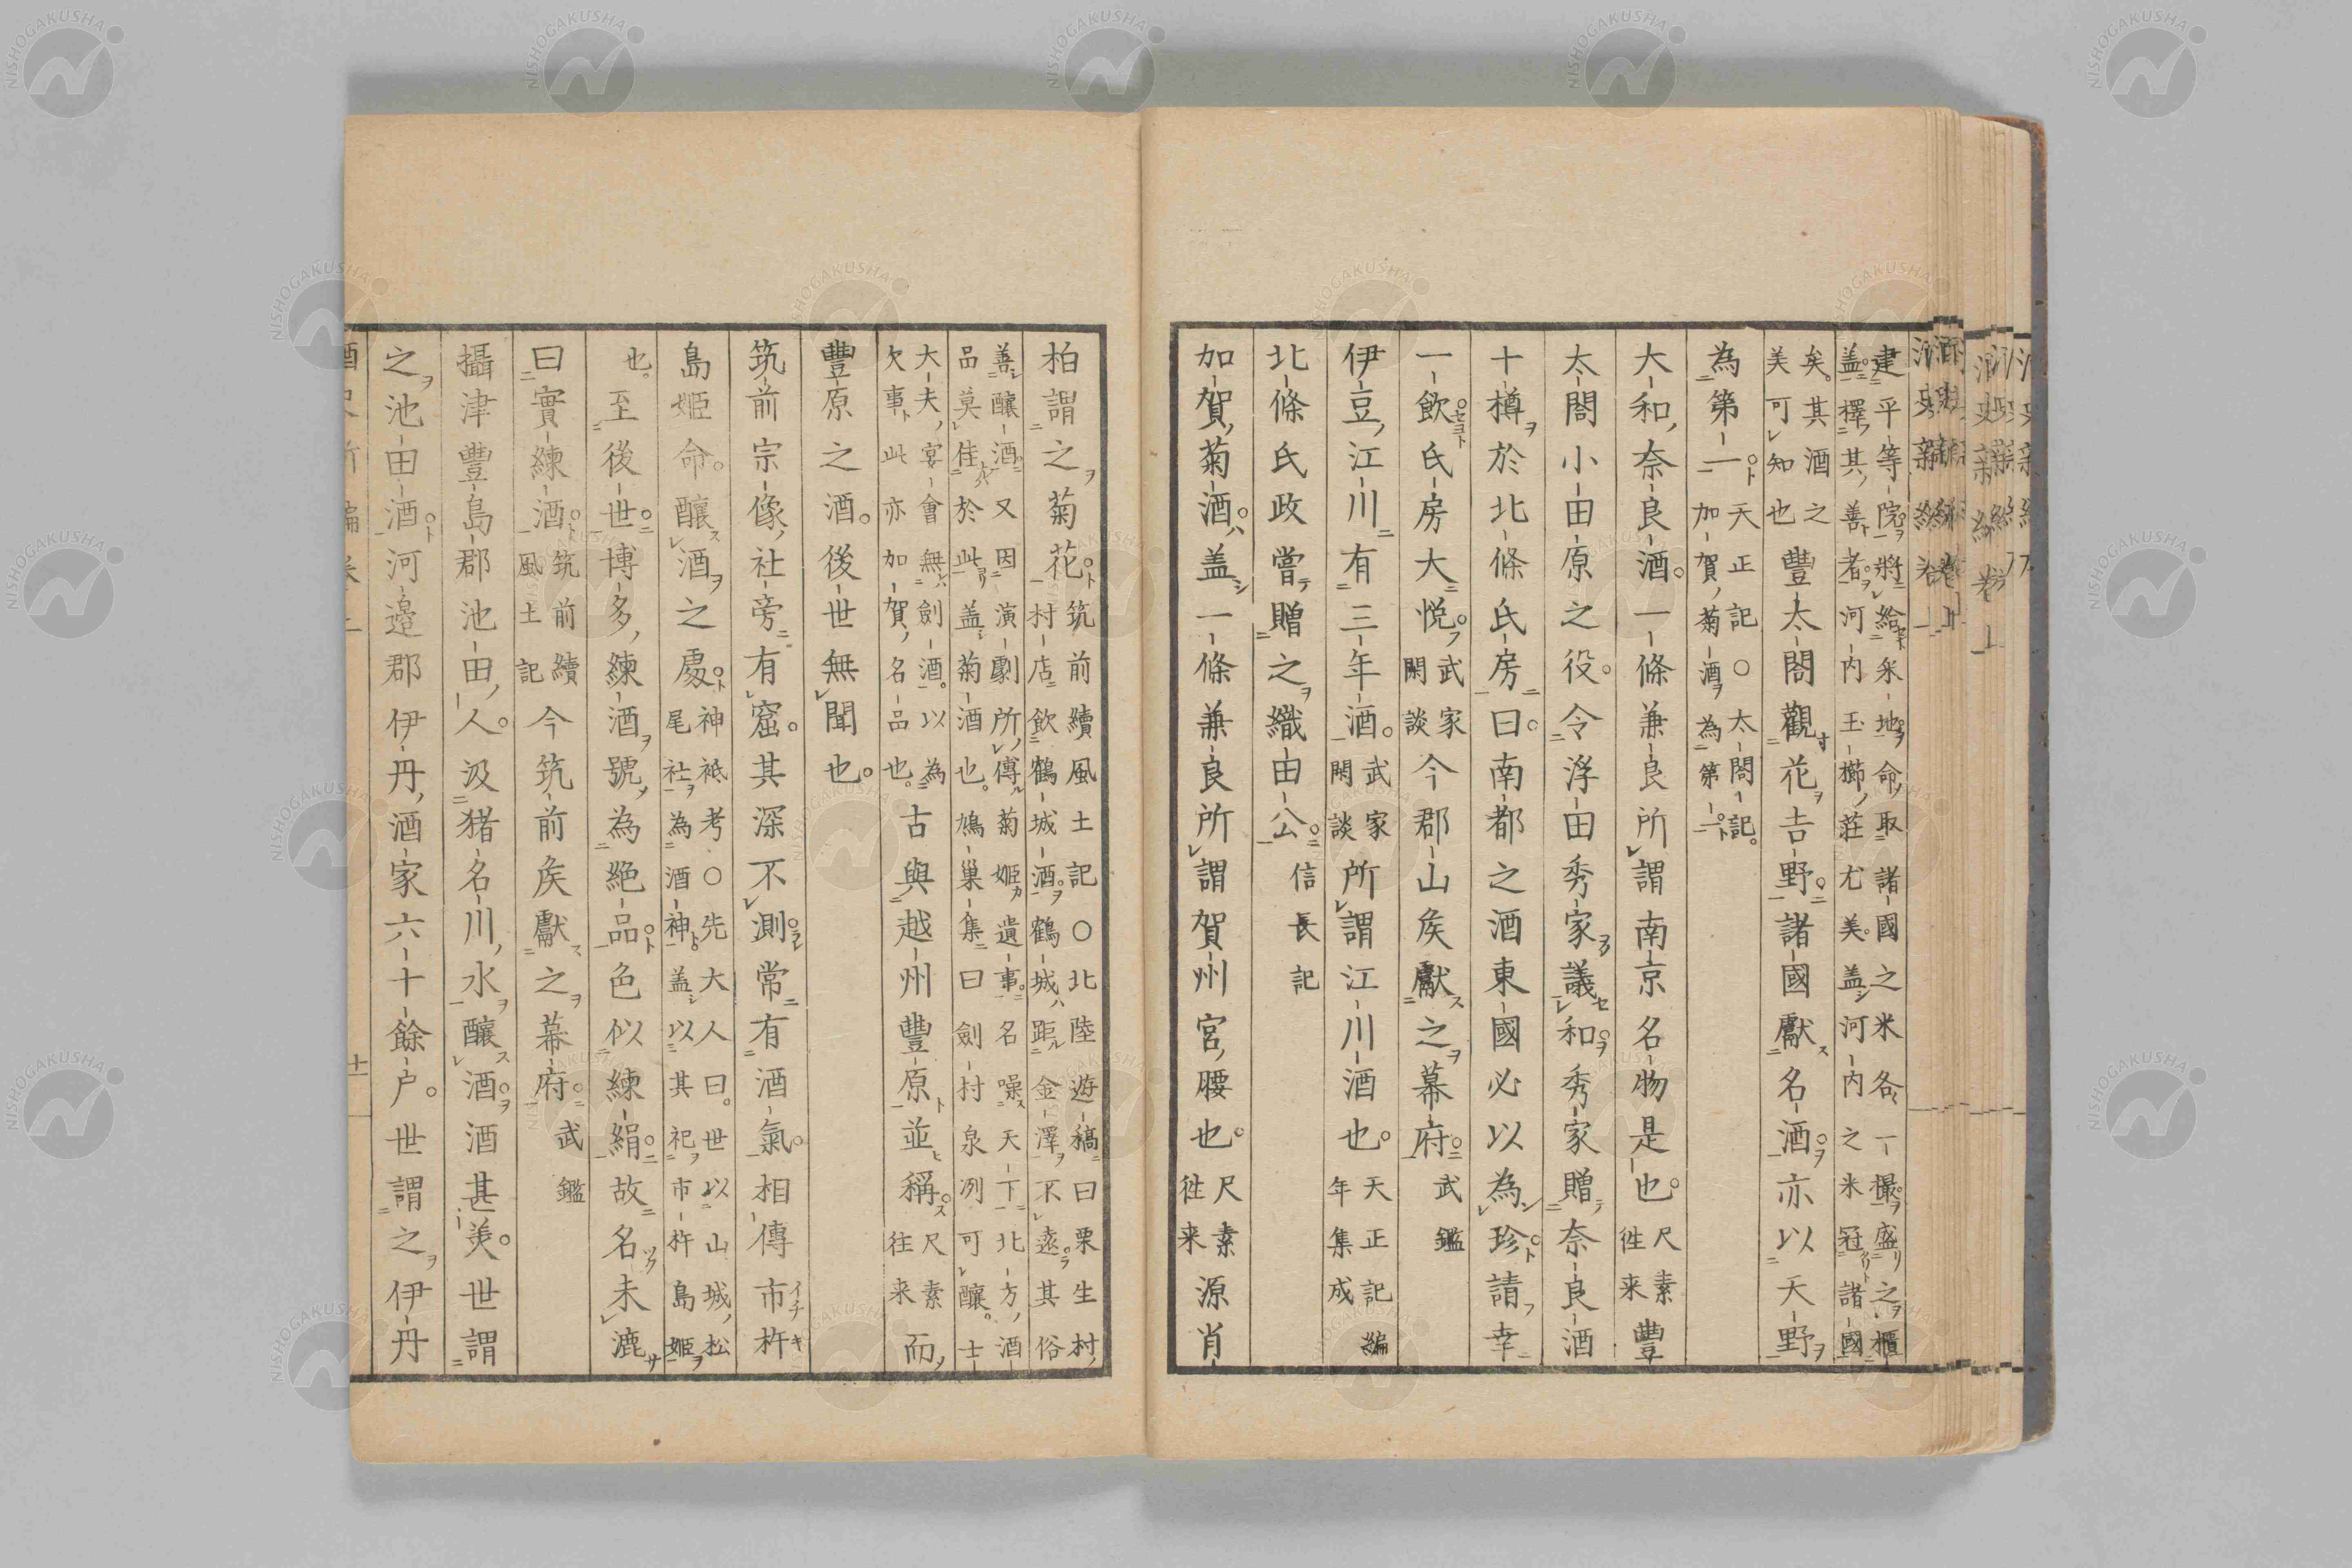 建平等院將給米地命取諸國之米各一撮盛之櫃
盖擇其善者河内玉櫛莊尤美盖河内之米冠諸國
矣其酒之
美可知也
豐太閤觀花吉野諸國獻名酒亦以天野
為第一
天正記○太閤記
加賀菊酒為第一
大和奈良酒一條兼良所謂南京名物是也
尺素
徃来
豐
太閤小田原之役令浮田秀家議和秀家贈奈良酒
十樽於北條氏房曰南都之酒東國必以為珍請幸
一飲氏房大悦
武家
閑談
今郡山矦獻之幕府
武鑑
伊豆江川有三年酒
武家
閑談
所謂江川酒也
天正記
年集成
編
北條氏政嘗贈之織田公
信長記
加賀菊酒盖一條兼良所謂賀州宮腰也
尺素
徃来
源肖
柏謂之菊花
筑前續風土記○北陸遊稿曰栗生村
村店飲鶴城酒鶴城距金澤不遠其俗
善釀酒又因演劇所傳菊姬遺事名噪天下北方酒
品莫佳於此盖菊酒也鳩巢集曰劍村泉冽可釀士
大夫宴會無劍酒以為
欠事此亦加賀名品也
古與越州豐原並稱
尺素
往来
而
豐原之酒後世無聞也
筑前宗像社旁有窟其深不測常有酒氣相傳市杵
イチキ
島姬命釀酒之處
神祇考○先大人曰世以山城松
尾社為酒神盖以其祀市杵島姬
也
至後世博多練酒號為絶品色似練絹故名未漉
曰實練酒
筑前續
風土記
今筑前矦獻之幕府
武鑑
攝津豐島郡池田人汲猪名川水釀酒酒甚美世謂
之池田酒河邉郡伊丹酒家六十餘户世謂之伊丹
十一